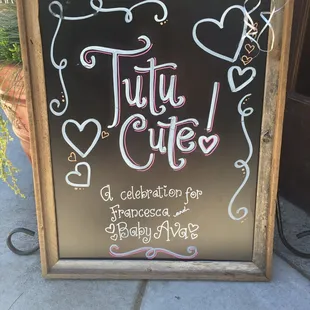 Tutu
Cute!
a celebration for
Francesca and
Baby Ava